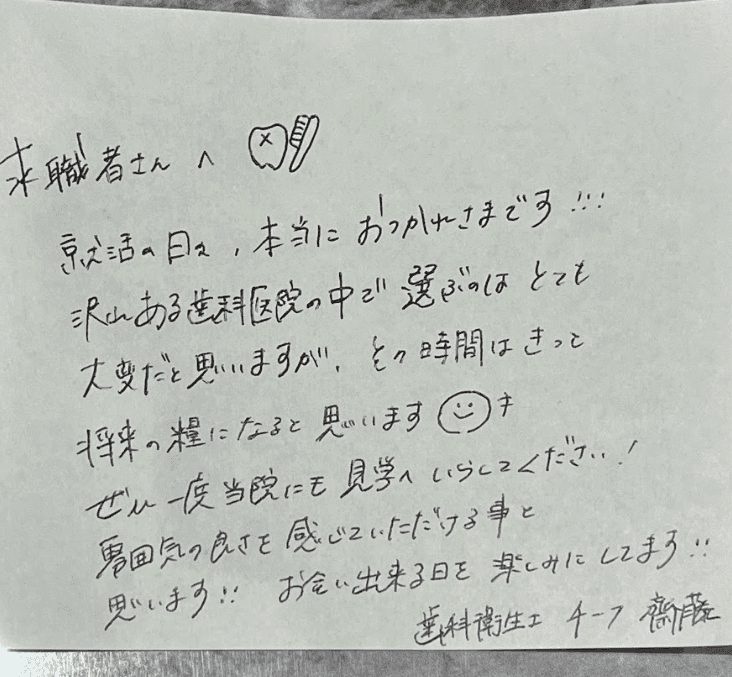 求職者さんへ
就活の日々、本当におつかれさまです!!!
沢山ある歯科医院の中で選ぶのはとても
大変だと思いますが、その時間はきっと
将来の糧になると思います
ぜひ一度当院にも見学へいらしてください!
雰囲気の良さを感じていただける事と
思います!! お会い出来る日を楽しみにしてます!!
歯科衛生士 チーフ 齋藤